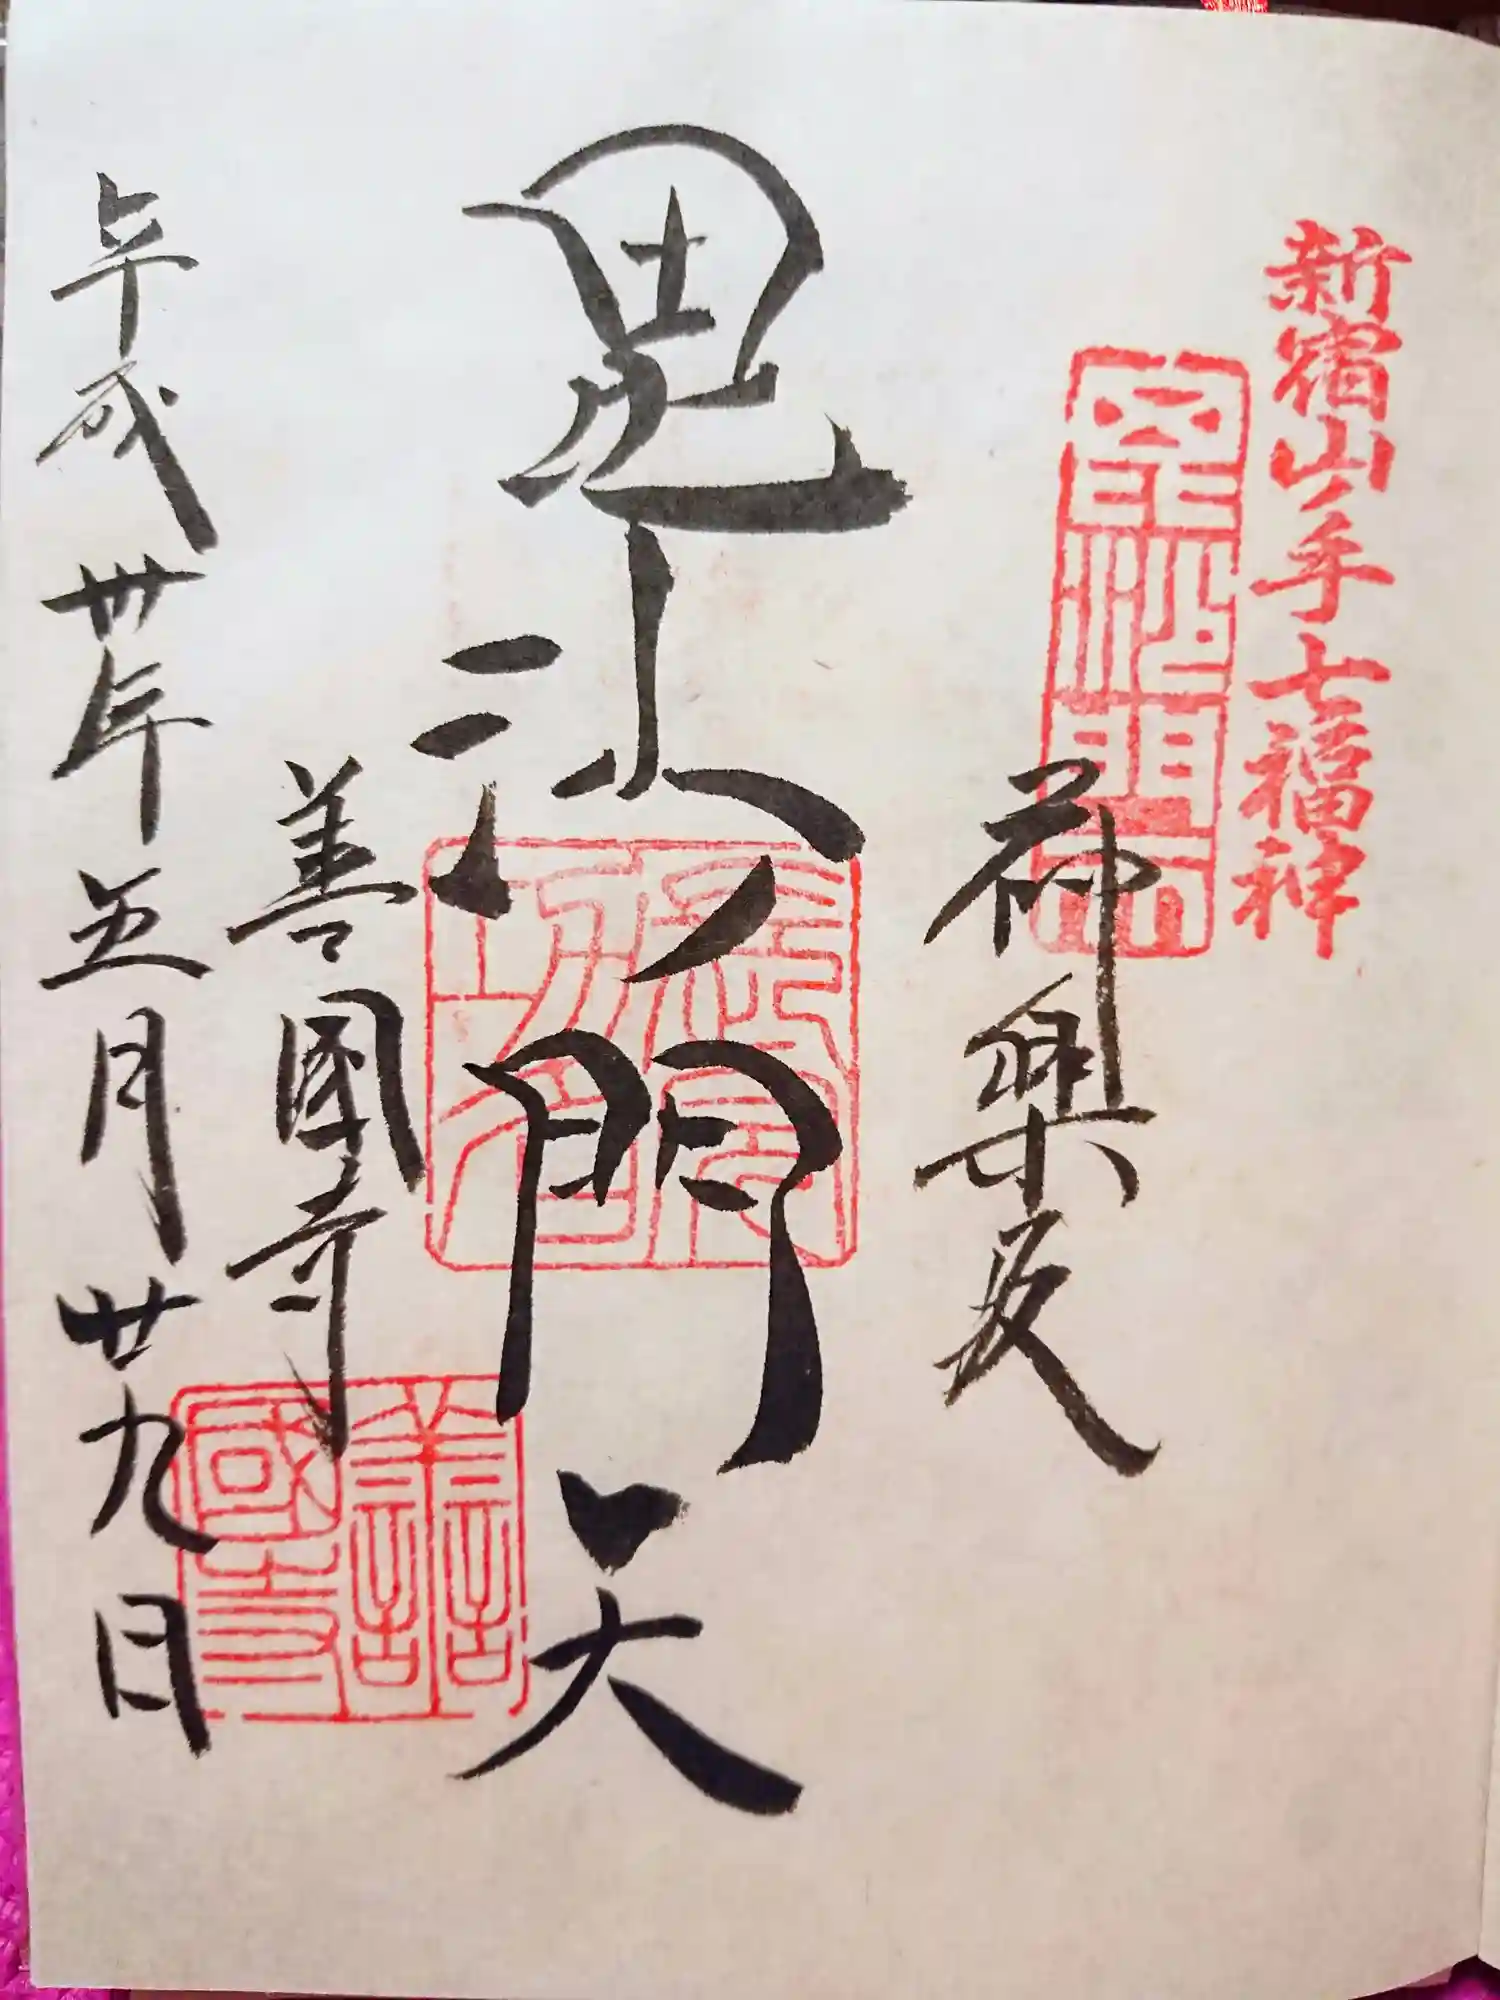 新宿山ノ手七福神
毘沙門天
神樂坂
毘沙門天
善國寺
善國寺
平成卅年五月廿九日